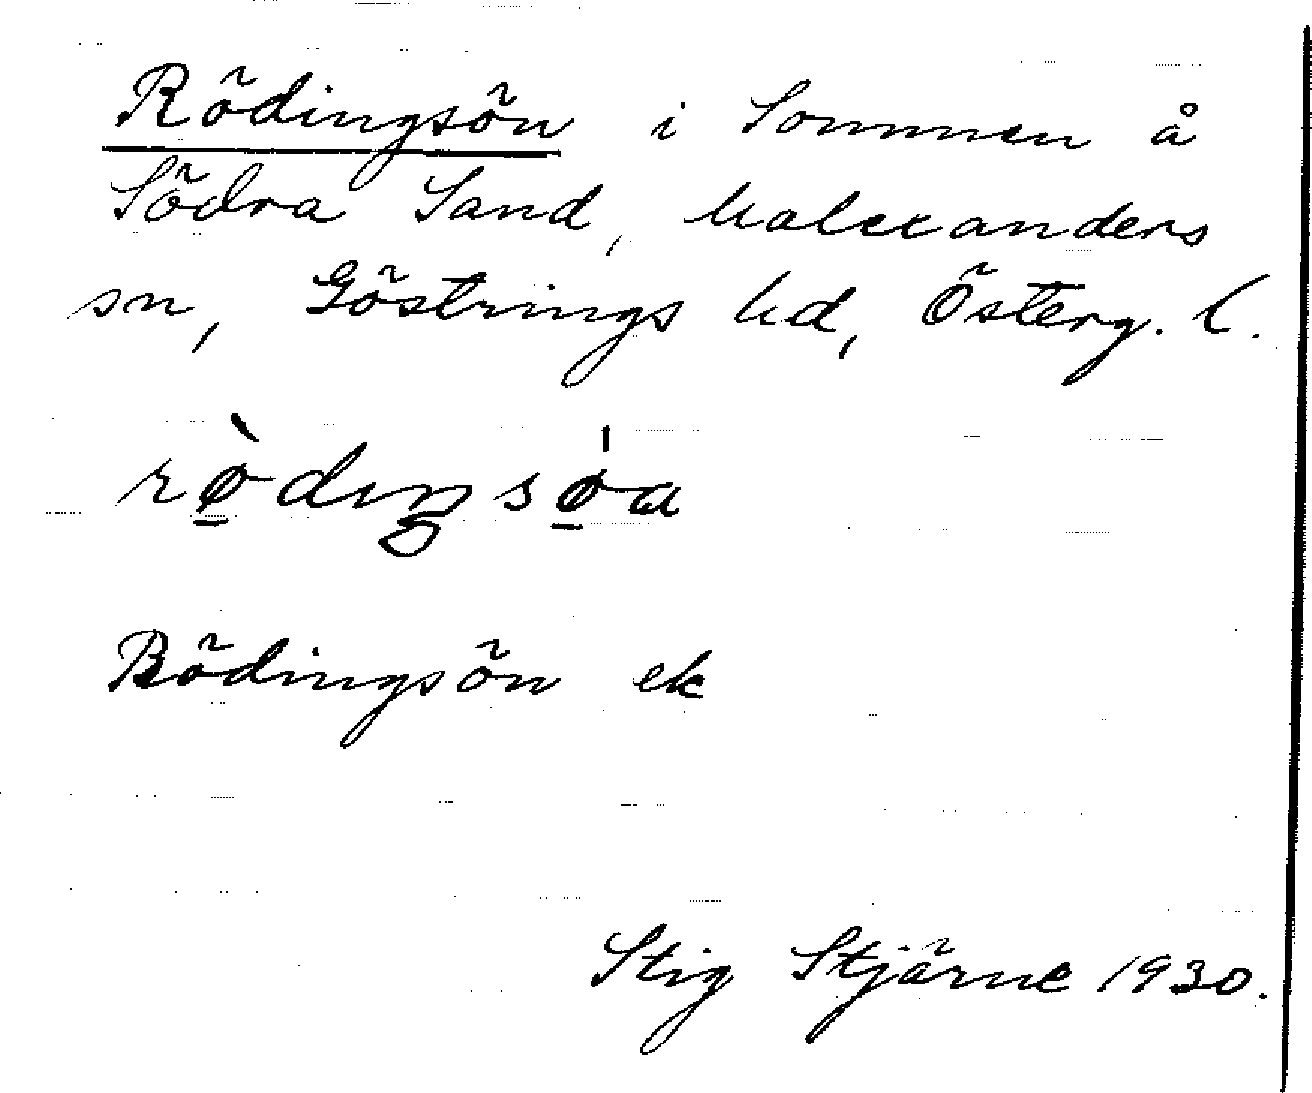 Rödingsön i Sommen å
Södra Sand, Malexanders
sn, Göstrings hd, Österg. l.
rø̀dıŋsø̍a
Rödingsön ek
Stig Stjärne 1930.